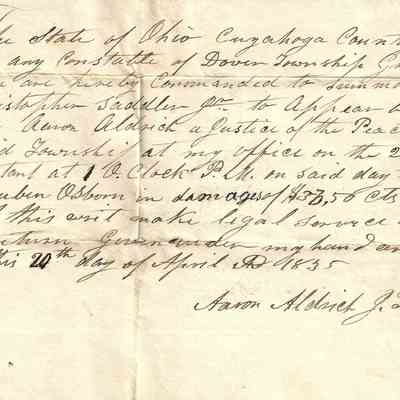 The State of Ohio Cuyahoga Count
any Constable of Dover Township G
are hereby Commanded to summo
istopher Saddler Jnr to Appear b
Aaron Aldrich a Justice of the Peac
id Township at my office on the 2
tant at 1 O. Clock P. M. on said day
euben Osborn in damages of $37,50 cts
this writ make legal service
eturn Given under my hand an
his 20th day of April AD 1835
Aaron Aldrich J.